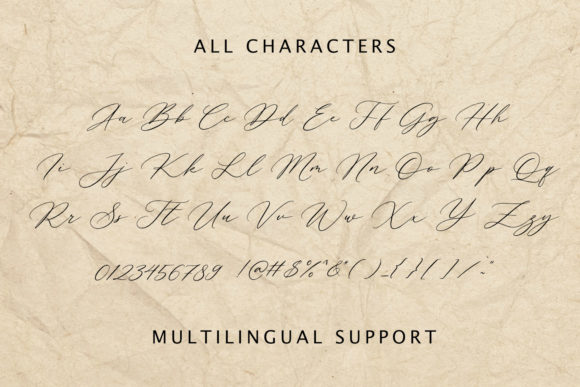 ALL CHARACTERS
Aa Bb Cc Dd Ee Ff Gg Hh
Ii Jj Kk Ll Mm Nn Oo Pp Qq
Rr Ss Tt Uu Vv Ww Xx Y Zzy
0123456789 !@#$%^&*()_{}[]/:"
MULTILINGUAL SUPPORT